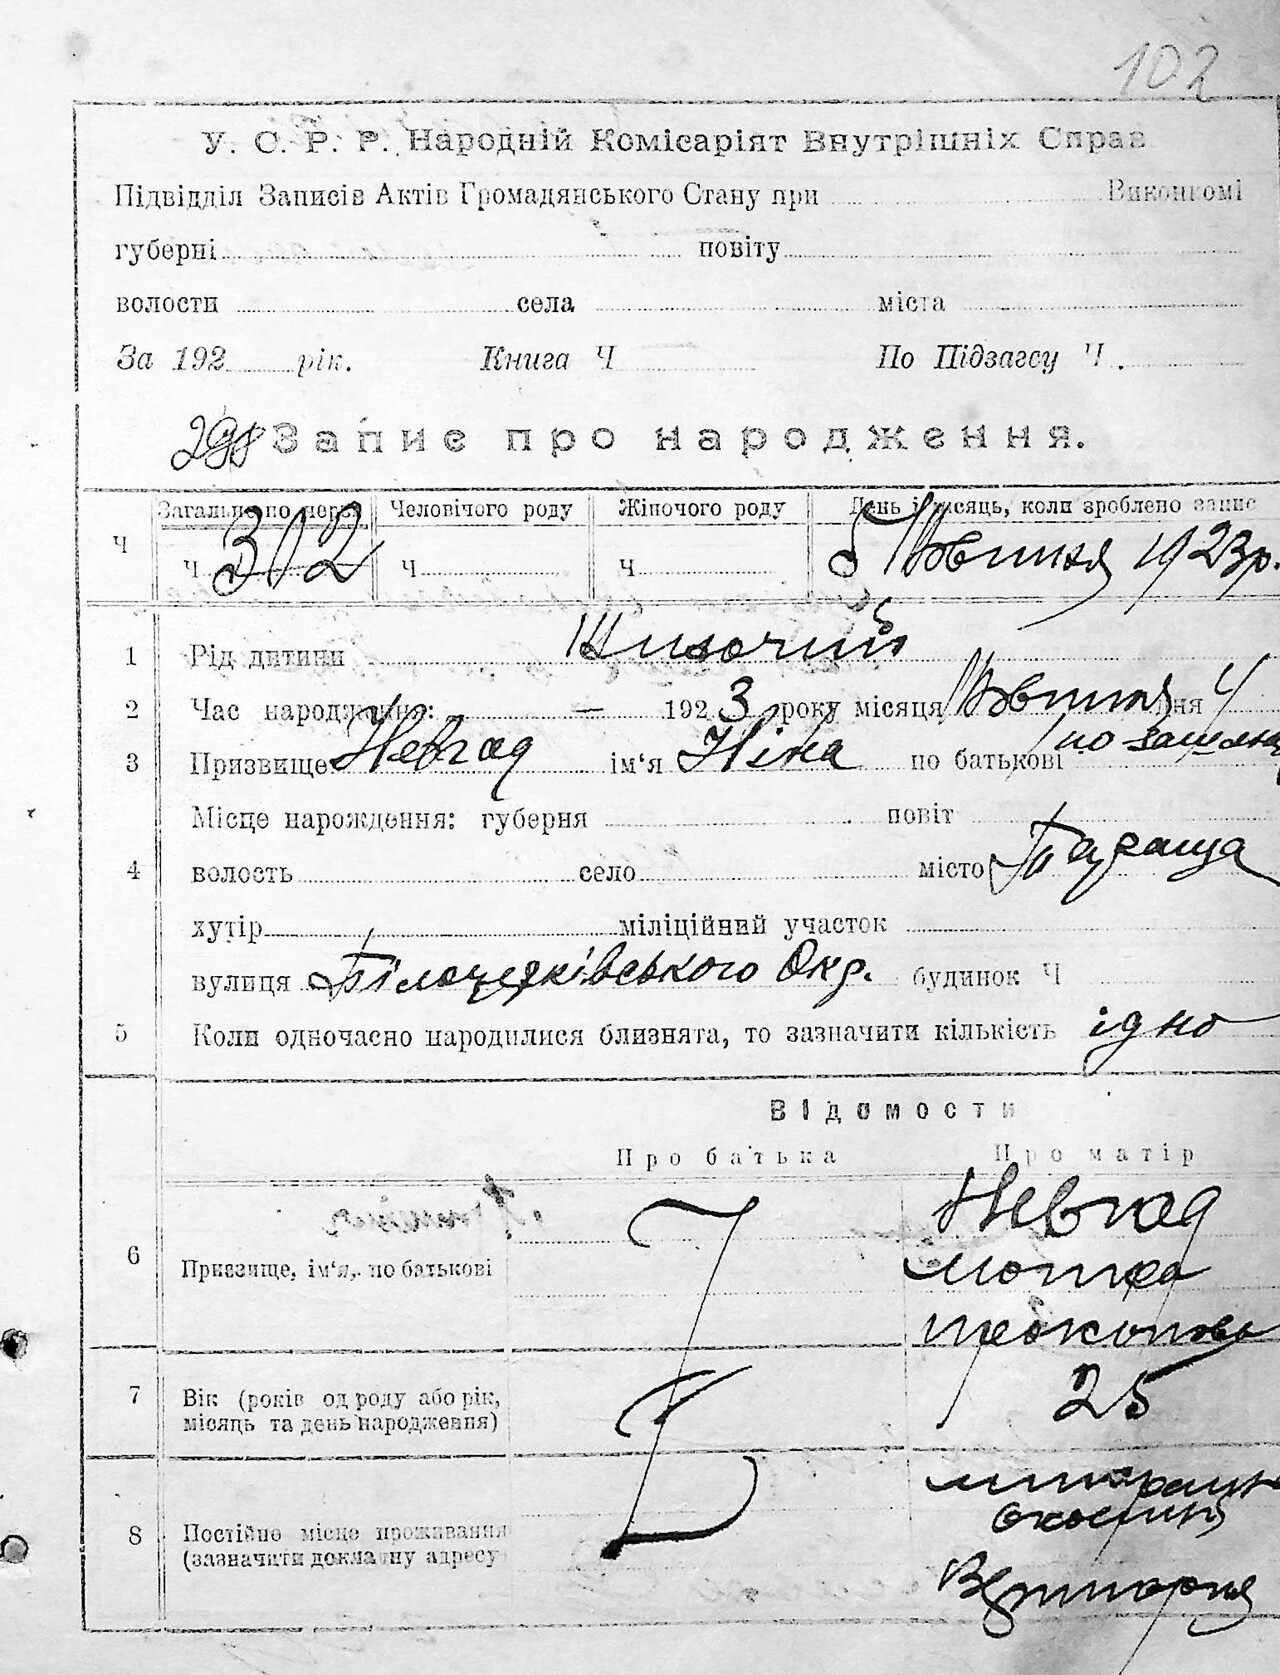 102
У. С. Р. Р. Народній Комісаріят Внутрішніх Справ
Підвідділ Записів Актів Громадянського Стану при Виконкомі
губерні повіту
волости села міста
За 192 рік. Книга Ч По Підзагсу Ч.
298 Запис про народження.
Загального пером Человічого роду Жіночого роду День і місяць, коли зроблено запис
Ч Ч 302 Ч Ч 5 Жовтня 1923р.
1 Рід дитини Жиночий
2 Час народження: — 1923 року місяця Жовтня дня 4
3 Призвище Невгад ім‘я Ніна по батькові по
Місце нарождення: губерня повіт
4 волость село місто Тараща
хутір міліційний участок
вулиця Білоцерківського Окр. будинок Ч
5 Коли одночасно народилися близнята, то зазначити кількість ідно
Відомости
Про батька Про матір
6 Призвище, ім‘я, по батькові Невгад
Мотря
Прокопова
7 Вік (років од роду або рік, місяць та день народження) 25
8 Постійне місце проживання (зазначити докладну адресу